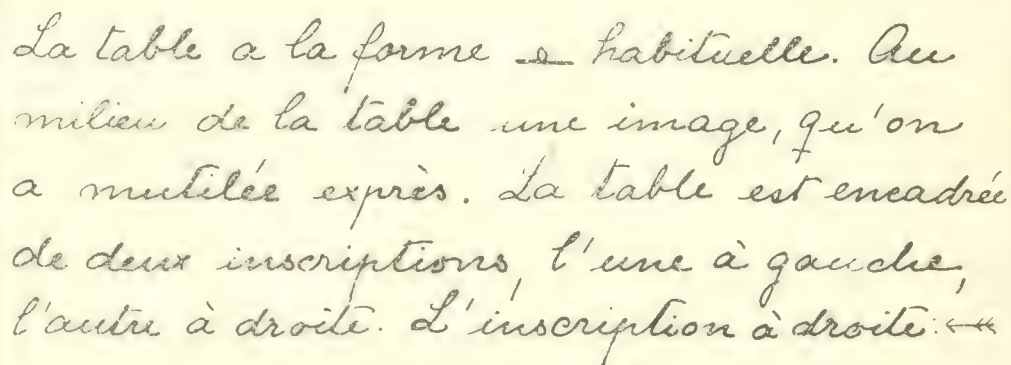 La table a la forme habituelle. Au
milieu de la table une image, qu'on
a mutilée exprès. La table est encadrée
de deux inscriptions, l'une à gauche,
l'autre à droite. L'inscription à droite: